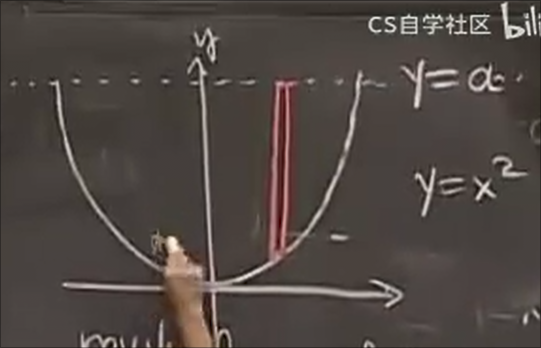 CS自学社区 bili
y
y=a
y=x²